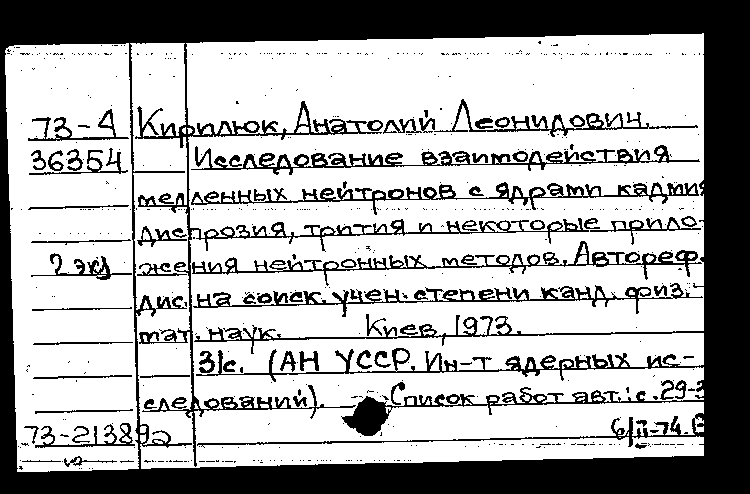 73-4 Кирилюк, Анатолий Леонидович.
36354 Исследование взаимодействия
медленных нейтронов с ядрами кадмия
диспрозия, трития и некоторые прило-
2 экз жения нейтронных методов. Автореф.
дис. на соиск. учен. степени канд. физ.-
мат. наук. Киев, 1973.
31с. (АН УССР. Ин-т ядерных ис-
следований). Список работ авт.: с. 29-3
73-21389 6/II-74.